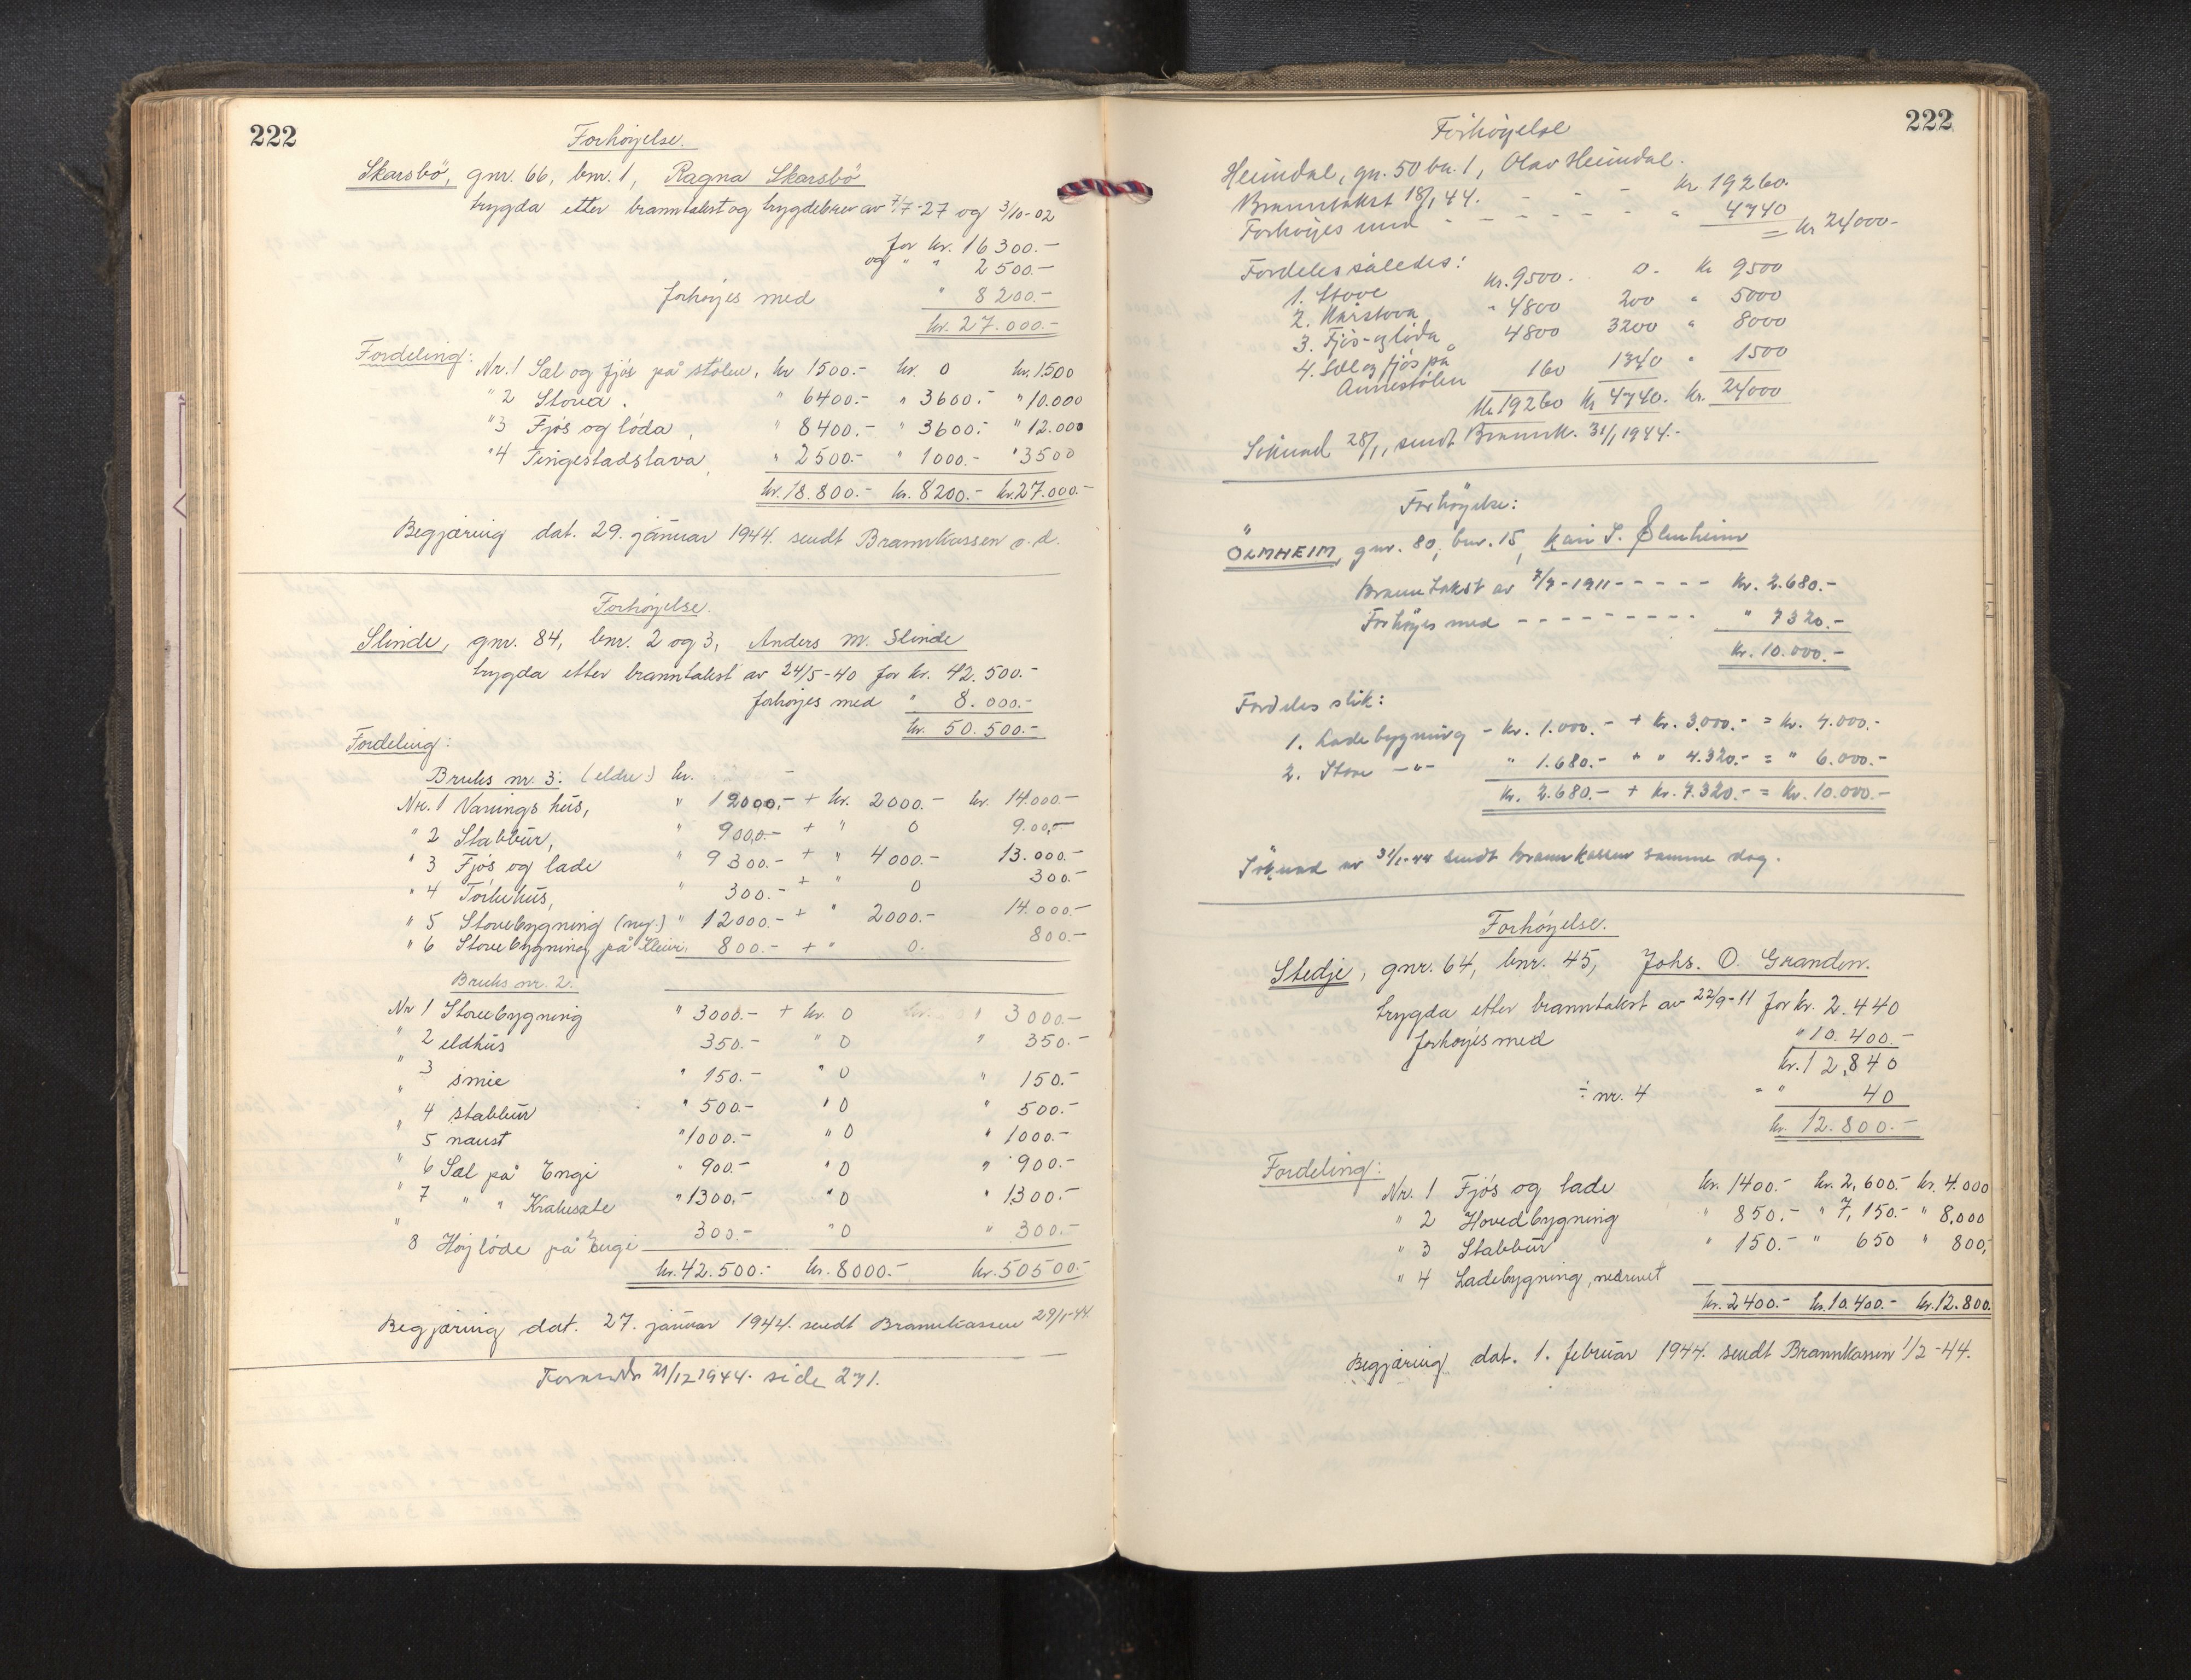 222
Forhøyelse.
Skarsbö, gnr. 66, bnr. 1, Ragna Skarsbö
trygda etter branntakst og trygdebrev av 7/7-27 og 3/10-02
for kr. 16300.-
og " " 2500.-
forhøyes med " 8200.-
kr. 27.000.-
Fordeling:
Nr. 1 Sæl og fjös på stölen, kr 1500.- kr. 0 kr. 1500
" 2 Stova. " 6400.- " 3600.- " 10.000
" 3 Fjös og löda, " 8400.- " 3600.- " 12.000
" 4 Tingestadstova, " 2500.- " 1000.- " 3500
kr. 18.800.- kr. 8200.- kr. 27.000.-
Begjæring dat. 29. januar 1944. sendt Brannkassen s.d.
Forhøyelse.
Slinde, gnr. 84, bnr. 2 og 3, Anders M. Slinde
trygda etter branntakst av 24/5-40 for kr. 42.500.-
forhøyes med " 8.000.-
kr. 50.500.-
Fordeling:
Bruks nr. 3. (eldre) kr. -
Nr. 1 Vånings hus, " 12000,- + kr. 2000.- kr. 14.000.-
" 2 Stabbur, " 900,- + " 0 900,-
" 3 Fjøs og lade " 9300.- + " 4000.- 13.000.-
" 4 Torkehus, " 300.- + " 0 300.-
" 5 Stovebygning (ny.) " 12000.- + " 2000.- 14.000.-
" 6 Stovebygning på Kleivi 800.- + " 0. 800.-
Bruks nr. 2.
Nr 1 Stovebygning " 3000.- + kr. 0 " 3000.-
" 2 eldhus 350.- " 0 " 350.-
" 3 smie " 150.- " 0 " 150.-
" 4 stabbur " 500.- " 0 " 500.-
" 5 naust " 1000.- " 0 " 1000.-
" 6 Sæl på Engi " 900.- " 0 " 900.-
" 7 " " Krakusete " 1300.- " 0 " 1300.-
" 8 Höylöde på Engi 300.- " 0 " 300.-
kr. 42.500.- kr. 8000.- kr. 50500.-
Begjæring dat. 27. januar 1944. sendt Brannkassen 29/1-44.
21/12 1944. side 271.
222
Forhöyelse
Heimdal, gn. 50 bn. 1, Olav Heimdal.
Branntakst 18/1 44. - - - kr 19260.
Forhöyes med - - - - - " 4740
= kr 24000-
Fordeles således:
1. Stove kr. 9500. 0- kr 9500
2. Kårstova " 4800 200 " 5000
3. Fjös-og löda 4800 3200 " 8000
4. Sel og fjös på
Annestölen 160 1340 " 1500
kr 19260 kr 4740. kr. 24000
Söknad 28/1, sendt Brannk. 31/1 1944.-
Forhöyelse:
ÖLMHEIM, gnr. 80, bnr. 15, Kari S. Ølmheim
Branntakst av 7/7-1911 - - - - - kr. 2.680.-
Forhöyes med - - - - - - - - - " 7320.-
kr. 10.000.-
Fordeles slik:
1. Ladebygning - kr. 1.000.- + kr. 3.000.- = kr. 4.000.-
2. Stove -"- " 1.680.- + " 4.320.- = " 6.000.-
kr. 2.680.- + kr. 7.320.- = kr. 10.000.-
Söknad av 31/1-44 sendt brannkassen samme dag.
Forhøyelse.
Stedje, gnr. 64, bnr. 45, Johs. O. Granden.
trygda etter branntakst av 22/9-11 for kr. 2.440
forhøyes med " 10.400.-
kr. 12,840
÷ nr. 4 = " 40
kr. 12.800.-
Fordeling:
Nr. 1 Fjös og lade kr. 1400.- kr. 2,600.- kr. 4.000
" 2 Hovedbygning " 850.- " 7,150.- " 8,000
" 3 Stabbur " 150.- " 650 " 800,-
" 4 Ladebygning, nedrevet
kr. 2400.- kr. 10.400.- kr. 12.800.
Begjæring dat. 1. februar 1944. sendt Brannkassen 1/2-44.